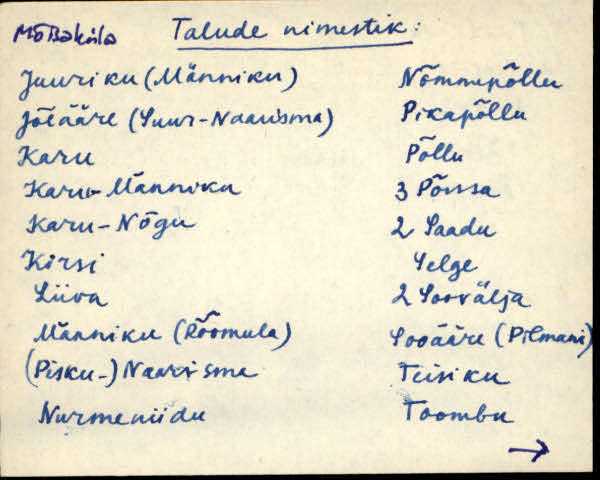 Mõtsküla
Talude nimestik:
Juuriku (Männiku)
Jõeääre (Suur-Naarisma)
Karu
Karu-Männiku
Karu-Nõgu
Kirsi
Liiva
Männiku (Rõõmula)
(Pisku-) Naarisma
Nurmeniidu
Nõmmepõllu
Pikapõllu
Põllu
3 Põrssa
2 Saadu
Selge
2 Soovälja
Sooääre (Pilmani)
Teisiku
Toombu